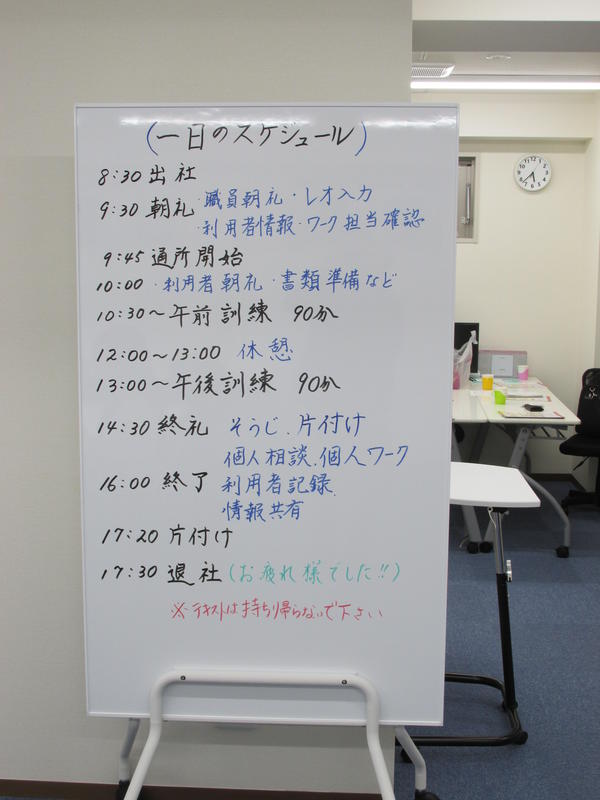 (一日のスケジュール)
8:30 出社
9:30 朝礼 ・職員朝礼・レオ入力
・利用者情報・ワーク担当確認
9:45 通所開始
10:00 ・利用者朝礼・書類準備など
10:30～午前訓練 90分
12:00～13:00 休憩
13:00～午後訓練 90分
14:30 終礼 そうじ、片付け
個人相談、個人ワーク
16:00 終了 利用者記録、
情報共有
17:20 片付け
17:30 退社(お疲れ様でした!!)
※テキストは持ち帰らないで下さい